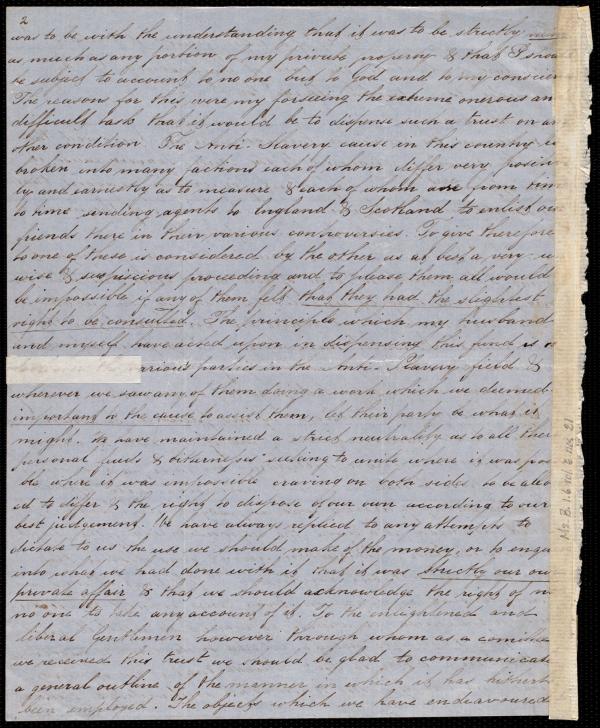 2
was to be with the understanding that it was to be strictly mine
as much as any portion of my private property & that I shou
be subject to account to no one but to God and to my conscien
The reasons for this were my forseeing the extreme onerous an
difficult task that it would be to dispense such a trust on an
other condition The Anti-Slavery cause in this country is
broken into many factions each of whom differ very positiv
ly and earnestly as to measure & each of whom are from tim
to time sending agents to England & Scotland to enlist our
friends there in their various controversies. To give therefore
to one of these is considered by the other as at best a very u
wise & suspiscious proceeding and to please them all would
be impossible if any of them felt that they had the slightest
right to be consulted. The principle which my husband
and myself have acted upon in dispensing this fund is
various parties in the Anti-Slavery field &
wherever we saw any of them doing a work which we deemed
important to the cause to assist them, let their party be what it
might. We have maintained a strict neutrality as to all their
personal feuds & bitterness seeking to unite where it was pos
ble where it was impossible craving on both sides to be allo
ed to differ & the right to dispose of our own according to our
best judgement. We have always replied to any attempts to
dictate to us the use we should made of the money, or to enqu
into what we had done with it that it was strictly our ow
private affair & that we should acknowledge the right of n
no one to take any account of it To the enlightened and
liberal Gentlemen however through whom as a comitte
we received this trust we should be glad to communicate
a general outline of the manner in which it has hithert
been employed. The objects which we have endeavoured
Ms. B. 1.6 vol. 5 no. 21